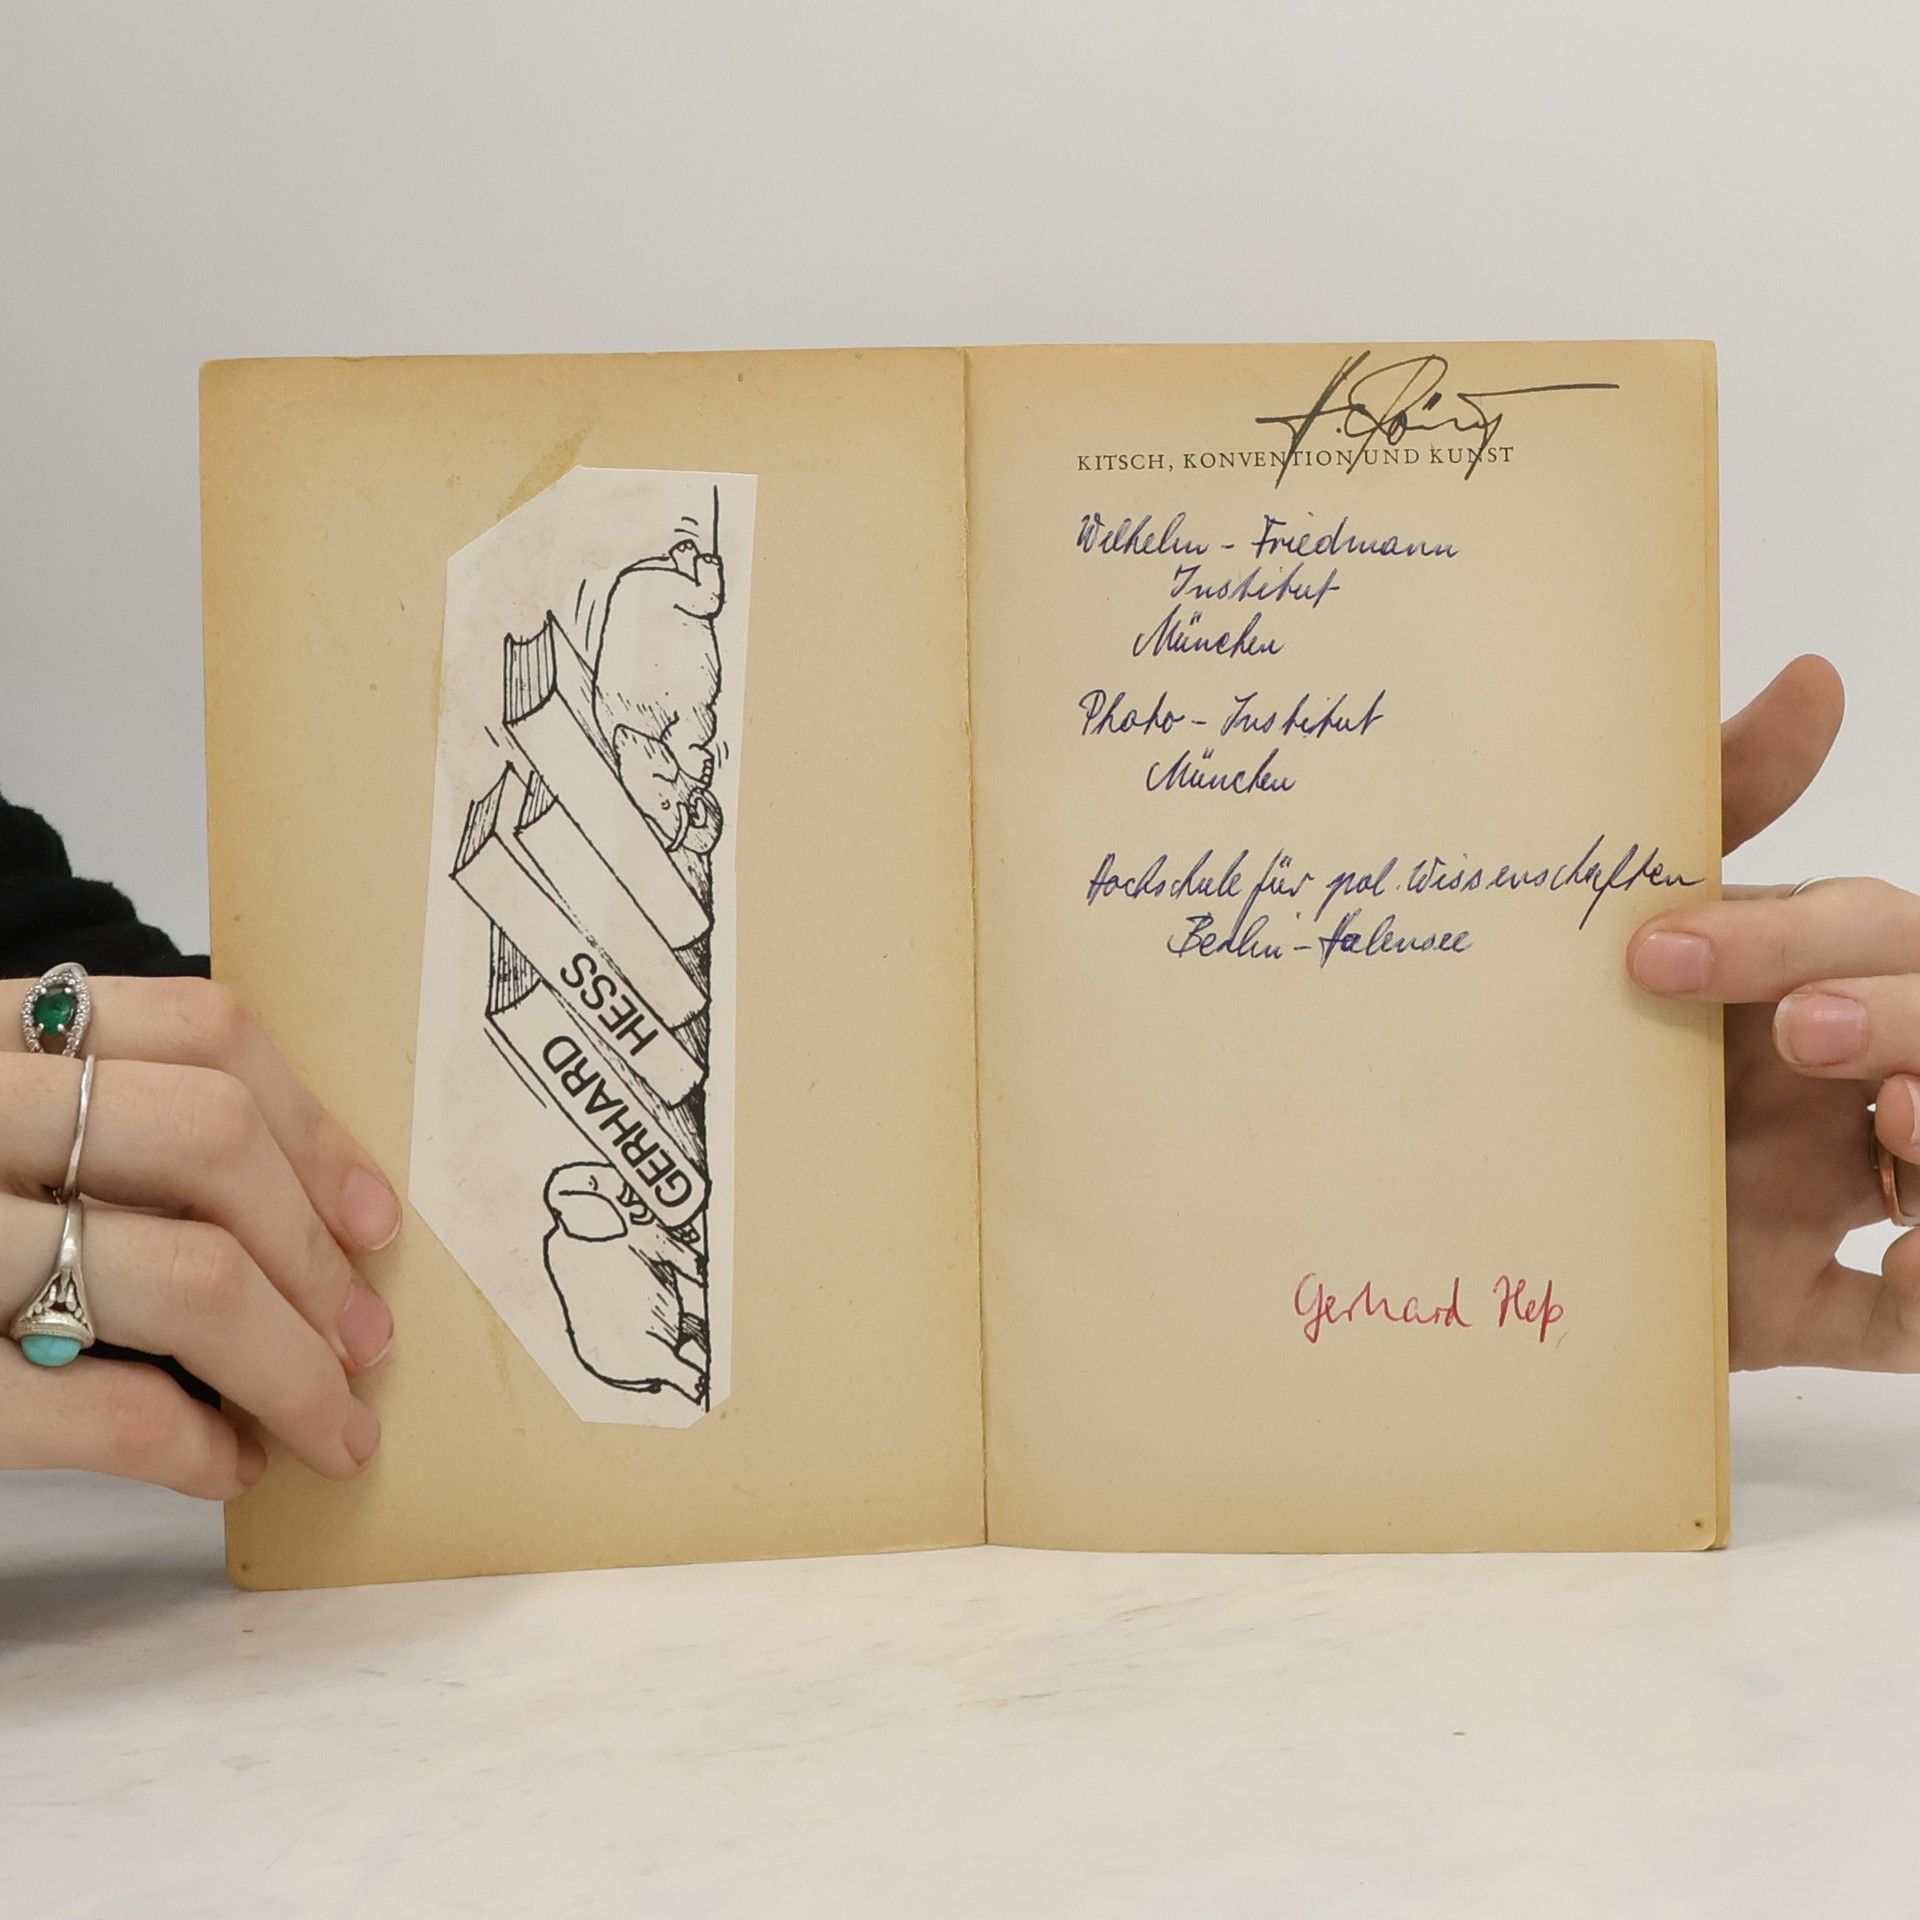 GERHARD
HESS
KITSCH, KONVENTION UND KUNST
Wilhelm - Friedmann
Institut
München
Photo - Institut
München
Hochschule für pol. Wissenschaften
Berlin - Halensee
Gerhard Heß